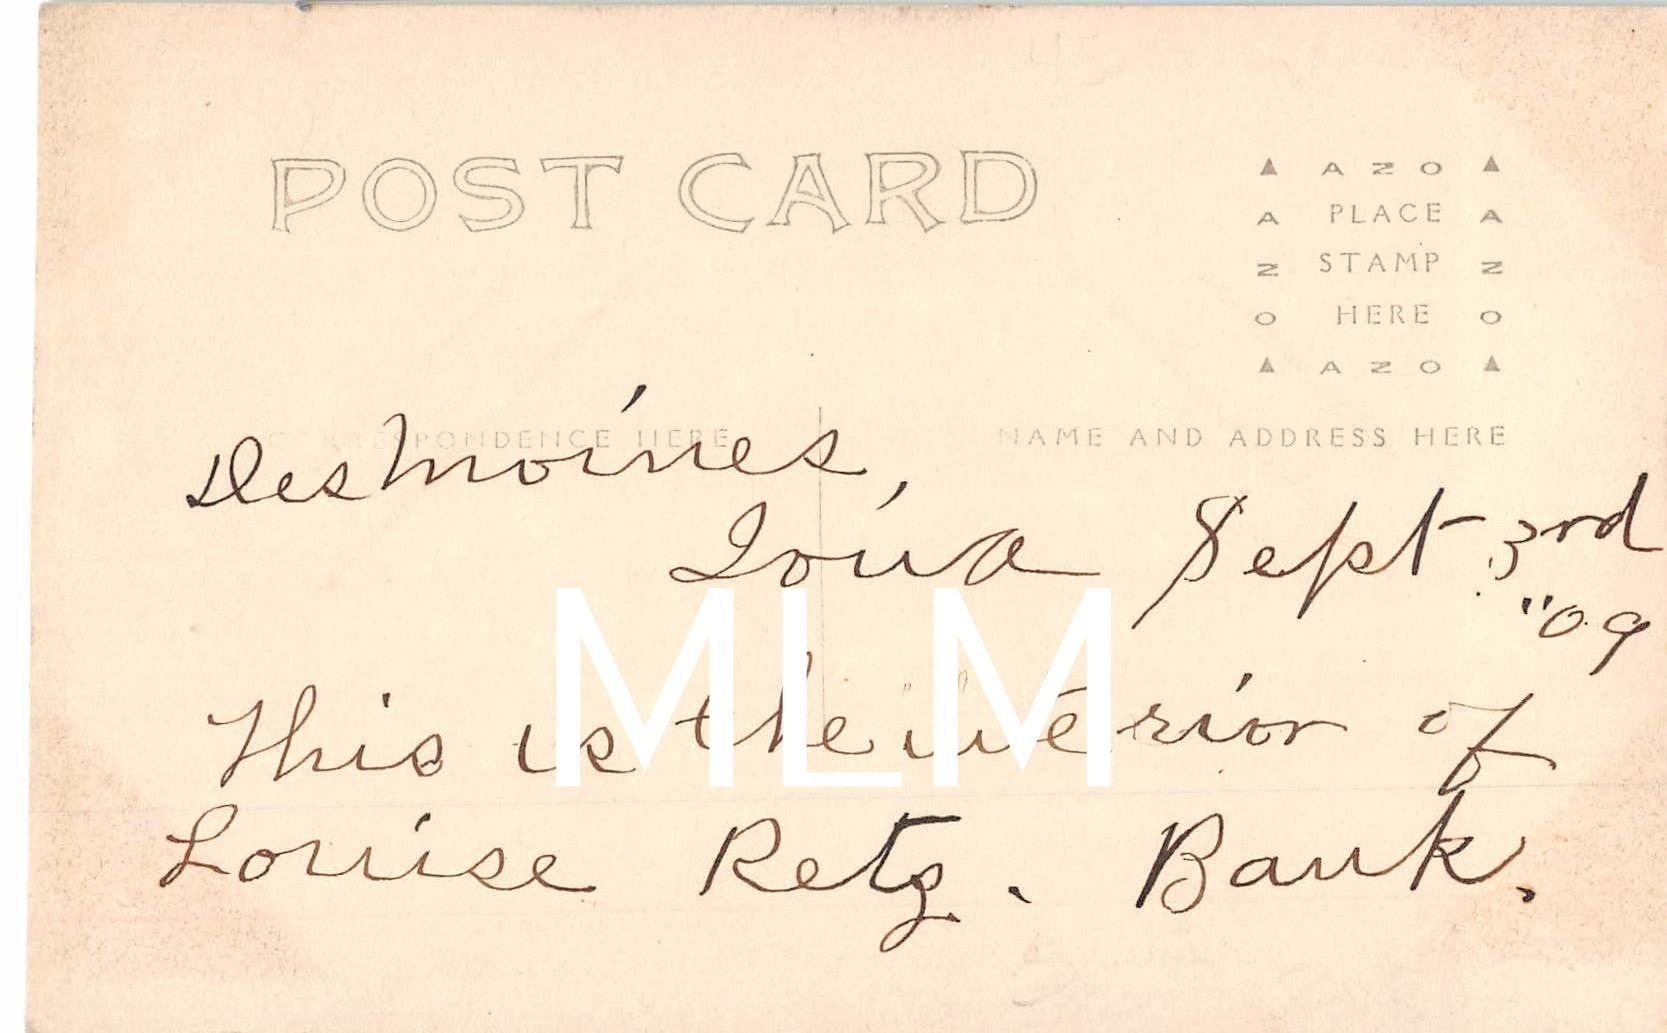 POST CARD
▲ AZO ▲
A PLACE A
Z STAMP Z
O HERE O
▲ AZO ▲
CORRESPONDENCE HERE
NAME AND ADDRESS HERE
Des Moines,
Iowa Sept 3rd
"09
This is the interior of
Louise Retz. Bank.
MLM